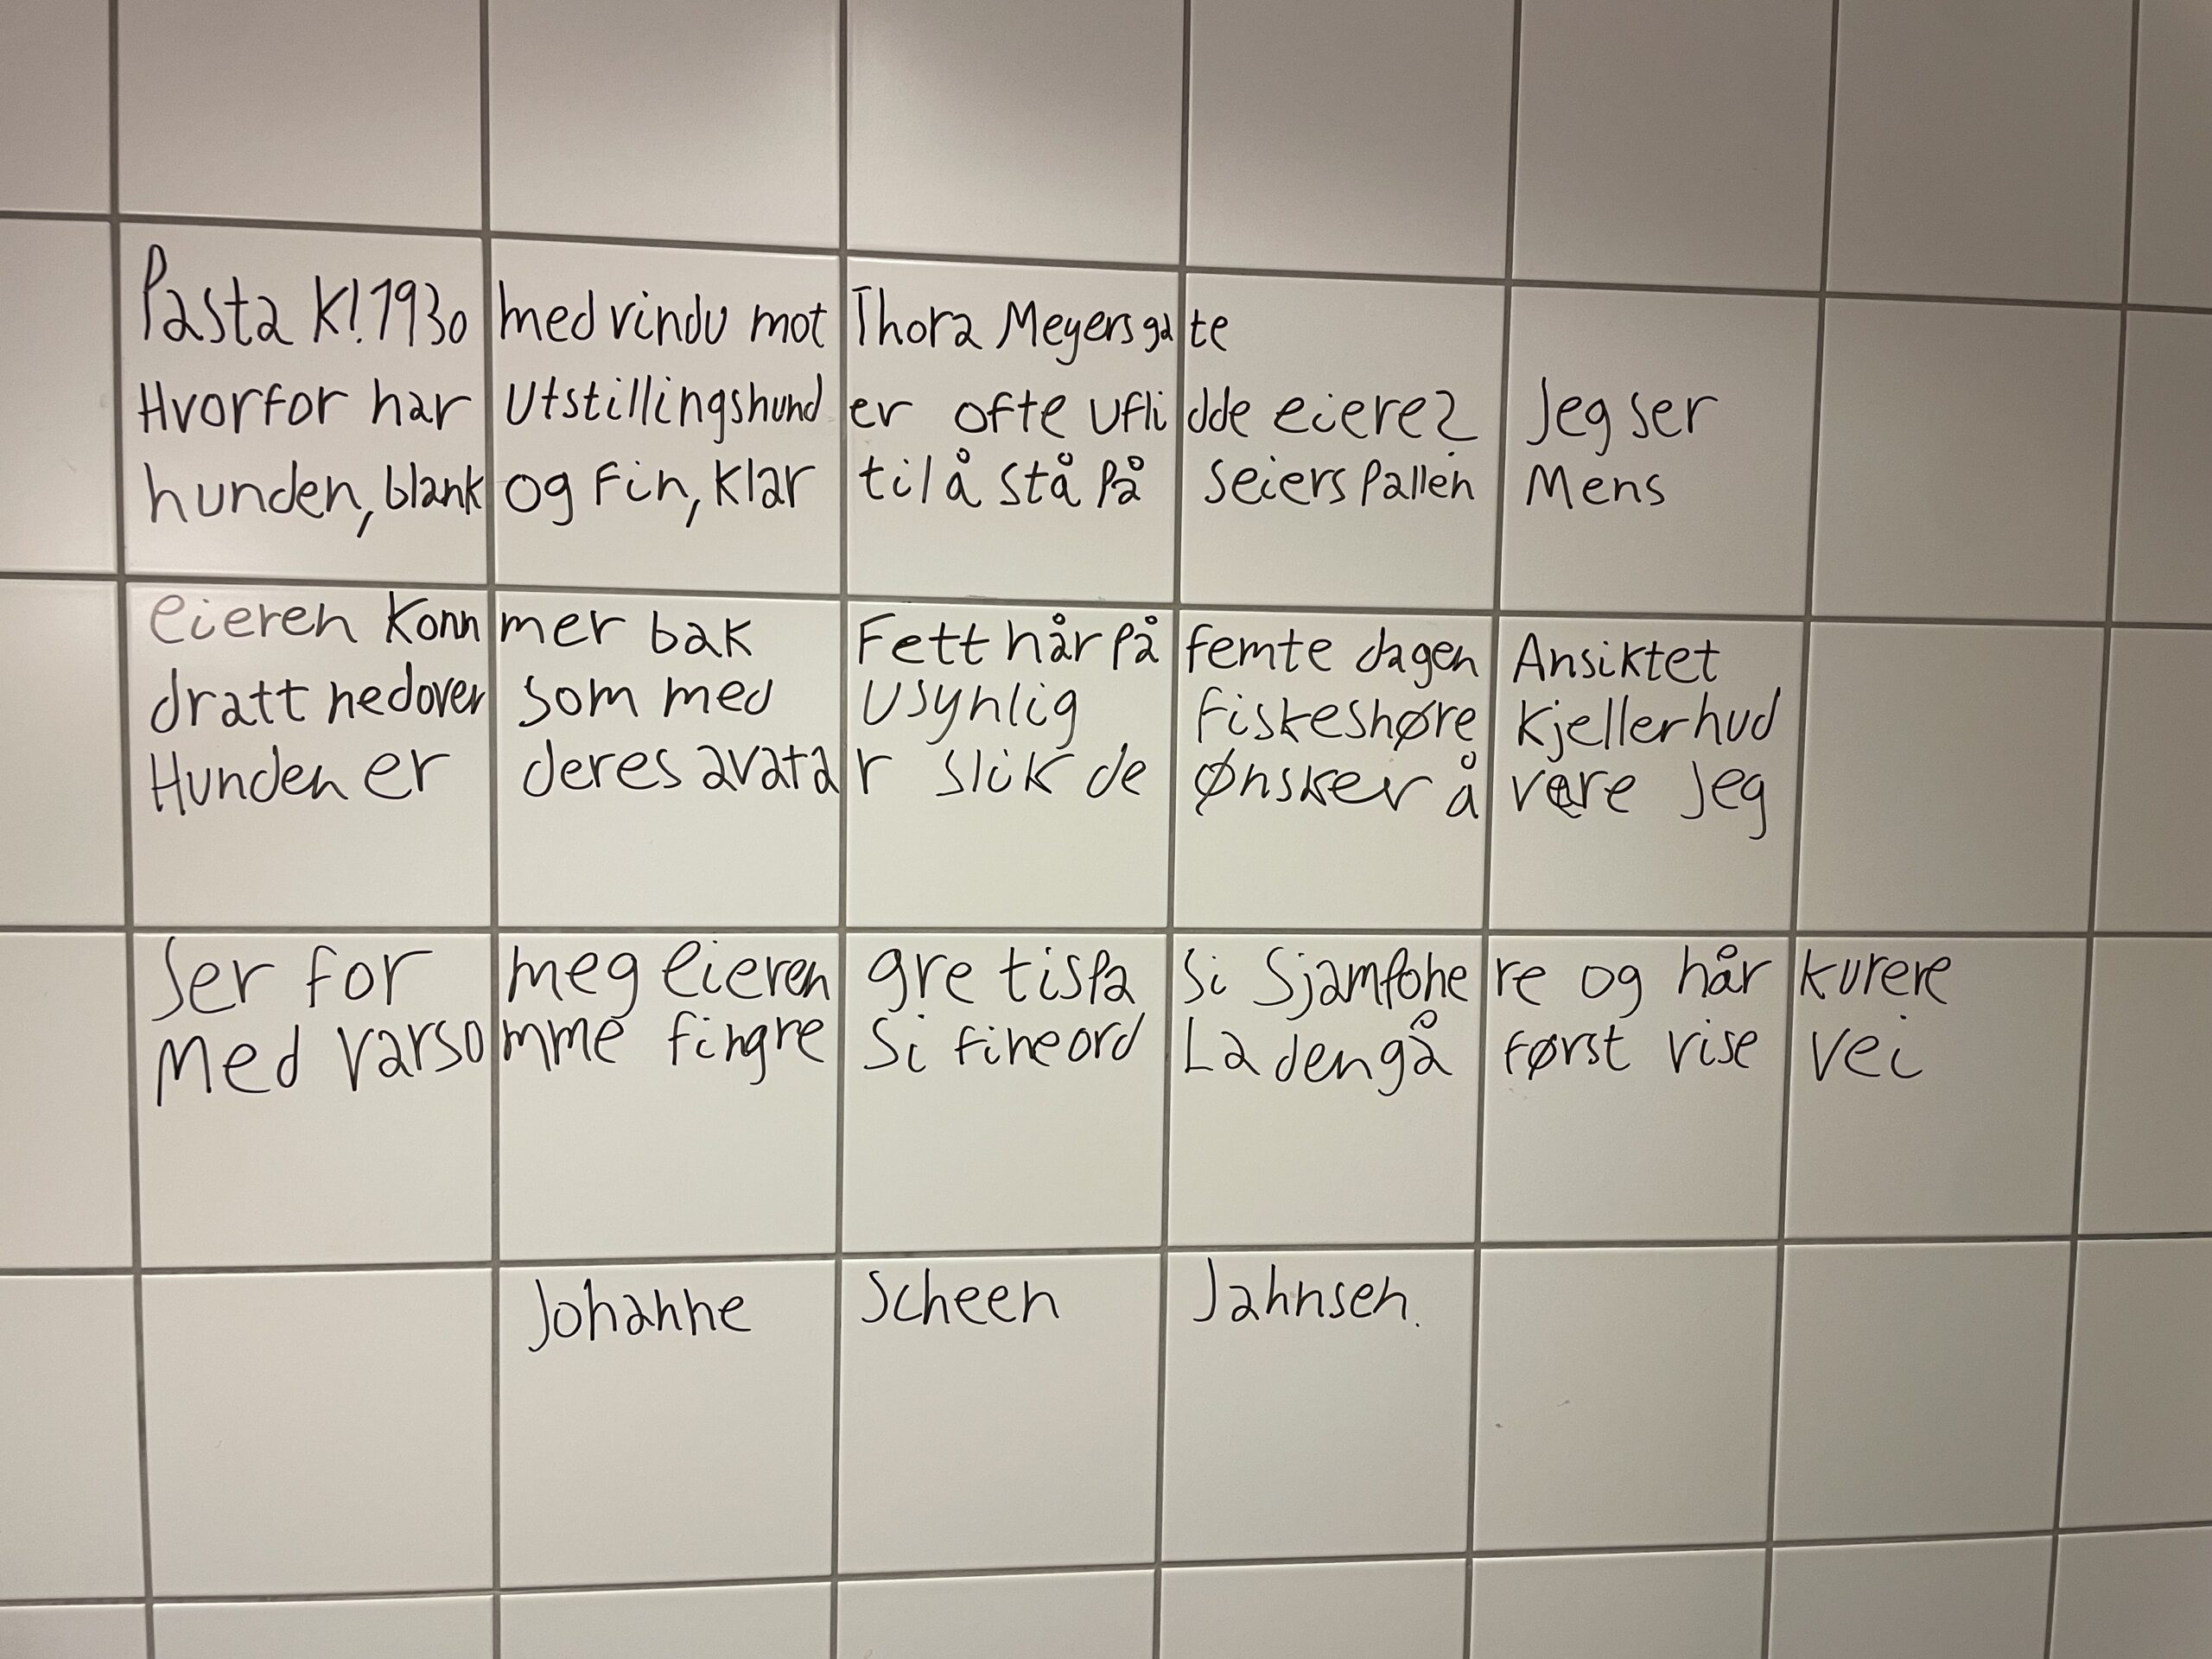 Pasta Kl. 1930 med vindu mot Thora Meyers gate
Hvorfor har Utstillingshunder ofte uflidde eiere? Jeg ser
hunden, blank og fin, klar til å stå på seierspallen Mens
eieren kommer bak Fett hår på femte dagen Ansiktet
dratt nedover som med usynlig fiskesnøre Kjellerhud
Hunden er deres avatar slik de ønsker å være Jeg
Ser for meg eieren gre tispa si Sjamponere og hår kurere
Med varsomme fingre Si fine ord La den gå først vise vei
Johanne Scheen Jahnsen.